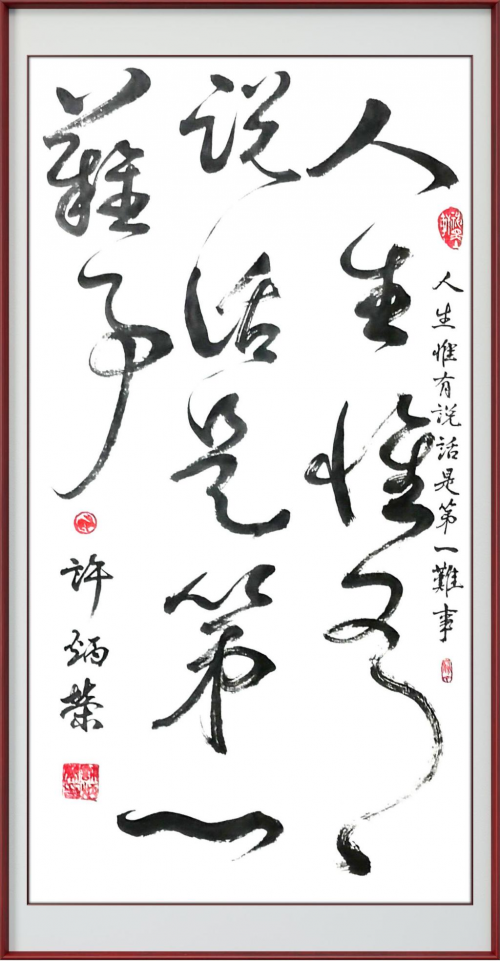 人生惟有
说话是第一
難事
人生惟有説話是第一難事
許炳榮